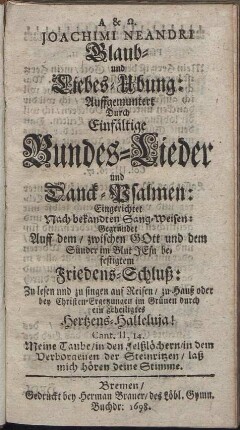 A & Ω.
JOACHIMI NEANDRI
Glaub-
und
Liebes-Ubung:
Auffgemuntert
Durch
Einfältige
Bundes-Lieder
und
Danck-Psalmen:
Eingerichtet
Nach bekandten Sang-Weisen:
Gegründet
Auff dem / zwischen GOtt und dem
Sünder im Blut JEsu be-
festigtem
Friedens-Schluß:
Zu lesen und zu singen auf Reisen / zu Hauß oder
bey Christen-Ergetzungen im Grünen durch
ein geheiligtes
Hertzens-Halleluja!
Cant. II, 14.
Meine Taube / in den Felßlöchern / in dem
Verborgenen der Steinritzen / laß
mich hören deine Stimme.
Bremen /
Gedruckt bey Herman Brauer / des Löbl. Gymn.
Buchdr: 1698.